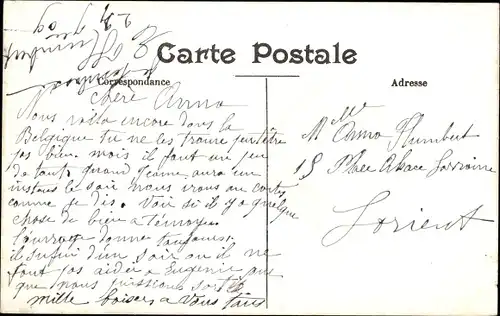 Carte Postale
Correspondance
Adresse
Chère Anna
Nous voila encore dans la
Belgique tu ne les trouve peutetre
pas bien mais il faut un peu
de tout quand j'aurai un
instant le soir nous irons au
comme je dis. Voir se il y a quelque
chose de bien a Témoyer
donne toujours
il sufira d'un soir ou il ne
faut pas aider a Eugenie
que nous puissions sortir
mille baisers a vous tous
Melle Anna Humbert
15 Place Alsace Lorraine
Lorient